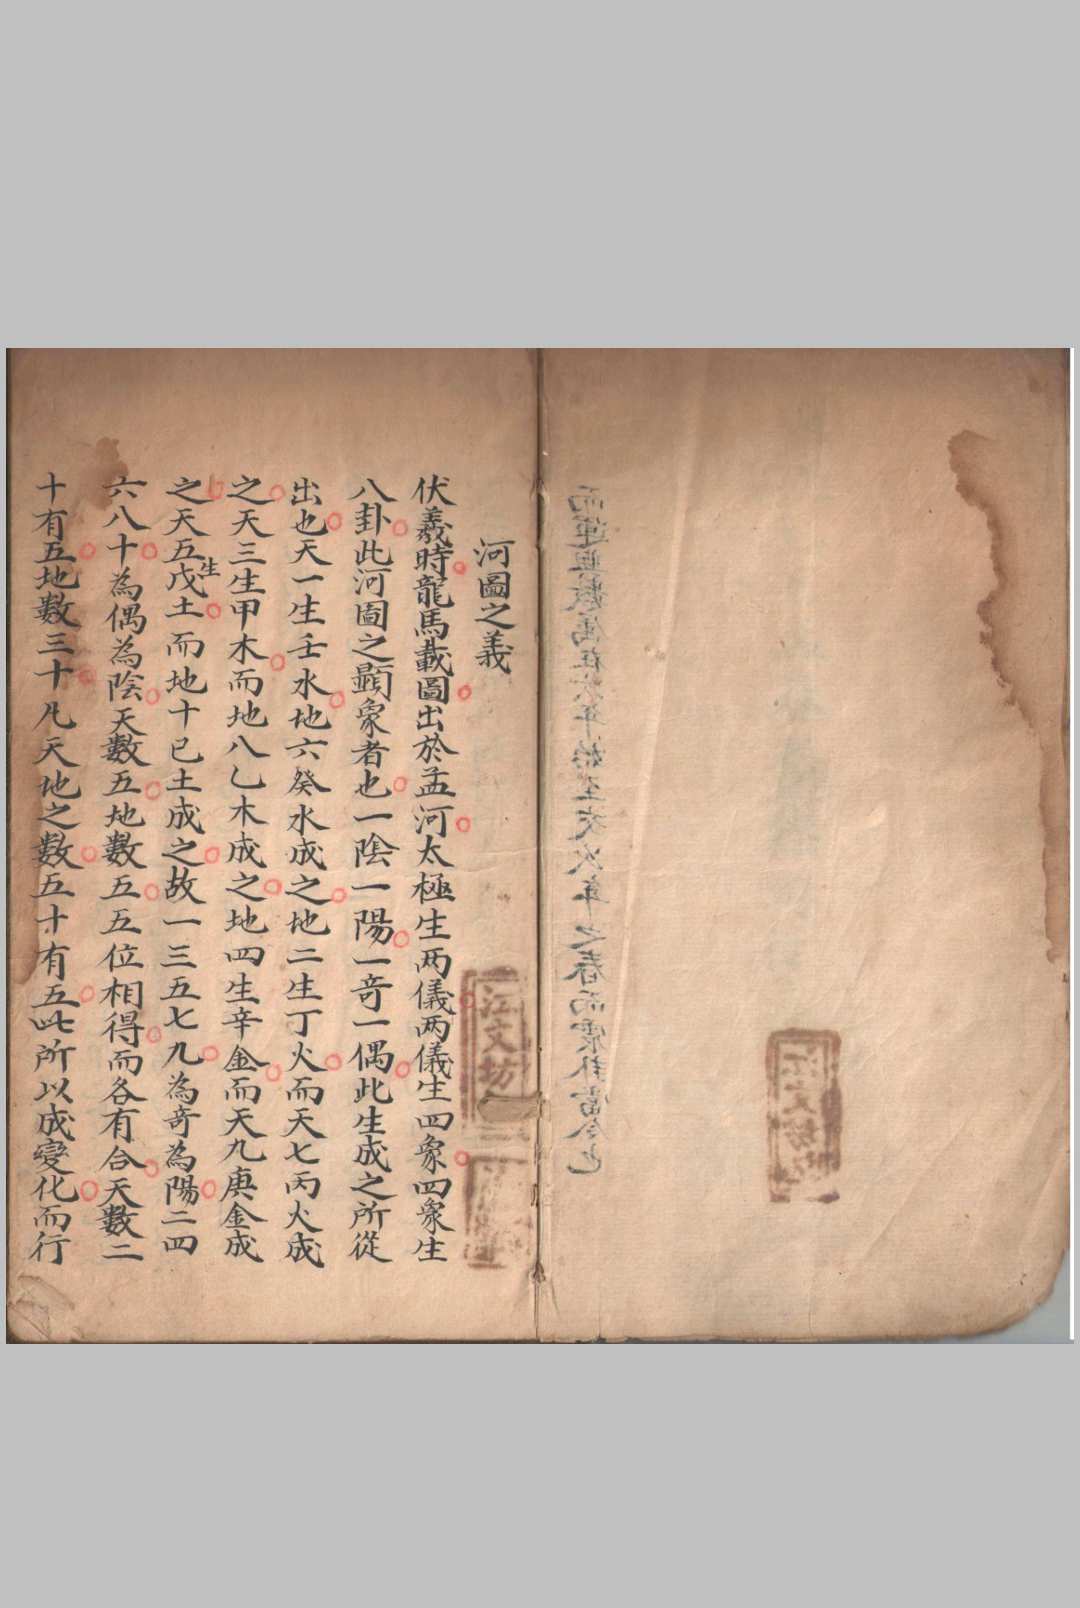 河圖之義
伏羲時龍馬載圖出於孟河太極生两儀两儀生四象四象生
八卦此河圖之顯象者也一陰一陽一奇一偶此生成之所從
出也天一生壬水地六癸水成之地二生丁火而天七丙火成
之天三生甲木而地八乙木成之地四生辛金而天九庚金成
之天五生戊土而地十己土成之故一三五七九為奇為陽二四
六八十為偶為陰天數五地數五五位相得而各有合天數二
十有五地數三十凡天地之數五十有五此所以成變化而行
江文坊
江文坊